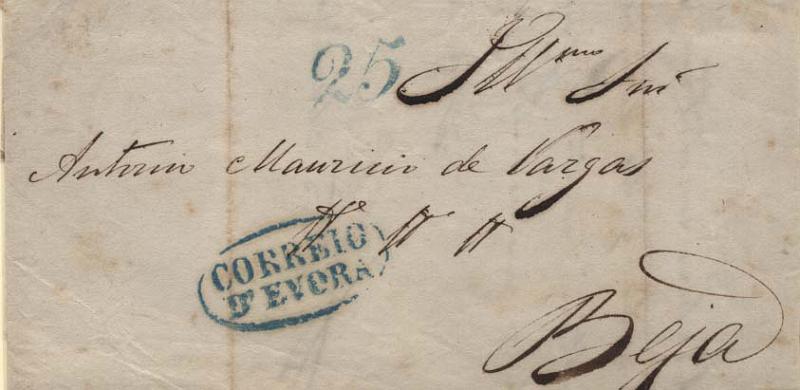 25
Illmo Snr
Antonio Mauricio de Vargas
CORREIO
D'EVORA
Beja